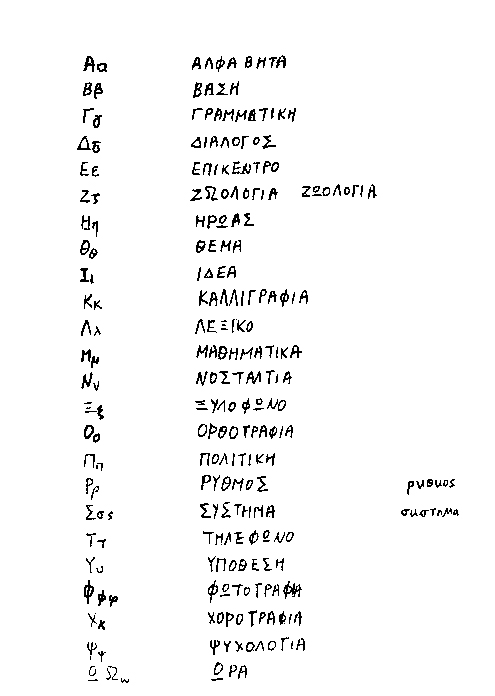 Αα ΑΛΦΑΒΗΤΑ
Ββ ΒΑΣΗ
Γγ ΓΡΑΜΜΑΤΙΚΗ
Δδ ΔΙΑΛΟΓΟΣ
Εε ΕΠΙΚΕΝΤΡΟ
Ζζ ΖΩΟΛΟΓΙΑ ΖΩΟΛΟΓΙΑ
Ηη ΗΡΩΑΣ
Θθ ΘΕΜΑ
Ιι ΙΔΕΑ
Κκ ΚΑΛΛΙΓΡΑΦΙΑ
Λλ ΛΕΞΙΚΟ
Μμ ΜΑΘΗΜΑΤΙΚΑ
Νν ΝΟΣΤΑΛΤΙΑ
Ξξ ΞΥΛΟΦΩΝΟ
Οο ΟΡΘΟΤΡΑΦΙΑ
Ππ ΠΟΛΙΤΙΚΗ
Ρρ ΡΥΘΜΟΣ ρυθμος
Σσς ΣΥΣΤΗΜΑ συστημα
Ττ ΤΗΛΕΦΩΝΟ
Υυ ΥΠΟΘΕΣΗ
Φφφ ΦΩΤΟΓΡΑΦΙΑ
Χχ ΧΟΡΟΤΡΑΦΙΑ
Ψψ ΨΥΧΟΛΟΓΙΑ
Ο Ωω ΟΡΑ